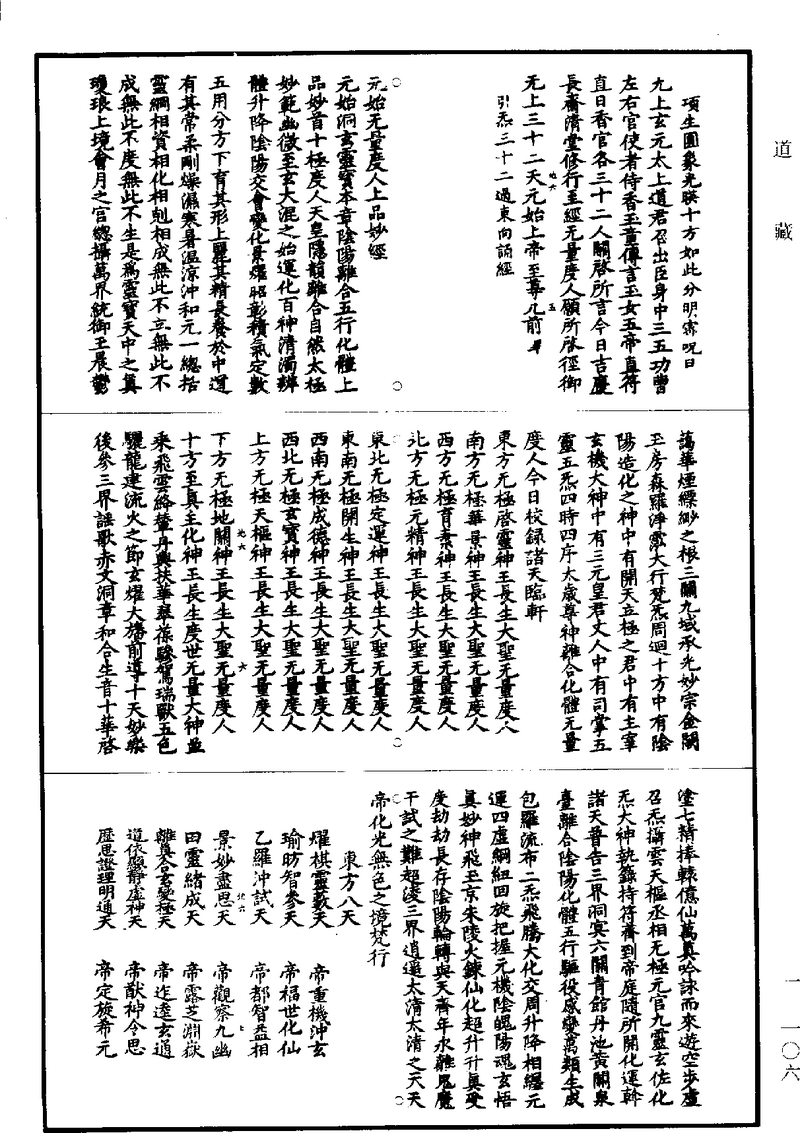 道藏
項生圓象光映十方如此分明密呪曰
九上玄元太上道君召出臣身中三五功曹
左右官使者侍香玉童傳言玉女五帝直符
直日香官各三十二人關啓所言今日吉慶
長齋清堂修行至經无量度人願所啓徑御
无上三十二天元始上帝至尊几前畢
引炁三十二過東向誦經
元始无量度人上品妙經
元始洞玄靈寶本章陰陽離合五行化體上
品妙首十極度人天皇隱韻離合自然太極
妙範幽微至玄大混之始運化百神清濁辨
體升降陰陽交會變化景燿昭彰積氣定數
五用分方下育其形上麗其精長養於中運
有其常柔剛燥濕寒暑温涼沖和元一總括
靈綱相資相化相剋相成無此不立無此不
成無此不度無此不生是爲靈寶天中之真
瓊琅上境會月之宮總攝萬界統御玉晨鬱
藹華煙縹緲之根三關九域承光妙宗金闕
玉房森羅淨霐大行梵炁周迴十方中有陰
陽造化之神中有開天立極之君中有主宰
玄機大神中有三元皇君丈人中有司掌五
靈五炁四時四序太歲尊神離合化體无量
度人今日校錄諸天臨軒
東方无極啓靈神王長生大聖无量度人
南方无極華景神王長生大聖无量度人
西方无極育素神王長生大聖无量度人
北方无極元精神王長生大聖无量度人
東北无極定運神王長生大聖无量度人
東南无極開生神王長生大聖无量度人
西南无極成德神王長生大聖无量度人
西北无極玄寶神王長生大聖无量度人
上方无極天樞神王長生大聖无量度人
下方无極地關神王長生大聖无量度人
十方至真主化神王長生度世无量大神並
乘飛雲綌輦丹輿扶華翠葆驂駕瑞獸五色
驪龍建流火之節玄燿大旛前導十天妙樂
後參三界謡歌赤文洞章和合生音十華啓
塗七精捧轅億仙萬真吟詠而來遊空步虛
召炁攝雲天樞丞相无極元官九靈玄佐化
炁大神執籙持符齎到帝庭隨所開化運幹
諸天普告三界洞冥六關青館丹池黄關泉
臺離合陰陽化體五行驅役感變萬類生成
包羅流布二炁飛騰大化交周升降相纒元
運四虛綱紐回旋把握元機陰魄陽魂玄悟
真妙神飛玉京朱陵火鍊仙化超升升真受
度劫劫長存陰陽輪轉與天齊年永離鬼魔
干試之難超淩三界逍遥太清太清之天天
帝化光無色之境梵行
東方八天
燿棋靈藪天 帝重機沖玄
瑜昉智參天 帝福世化仙
乙羅冲試天 帝都智益相
景妙盡思天 帝觀察九幽
田靈緒成天 帝露芝淵嶽
離真合玄變極天 帝迮逵玄通
道依顯静虛神天 帝猷神令思
歷思證理明通天 帝定旋希元
一 一〇六